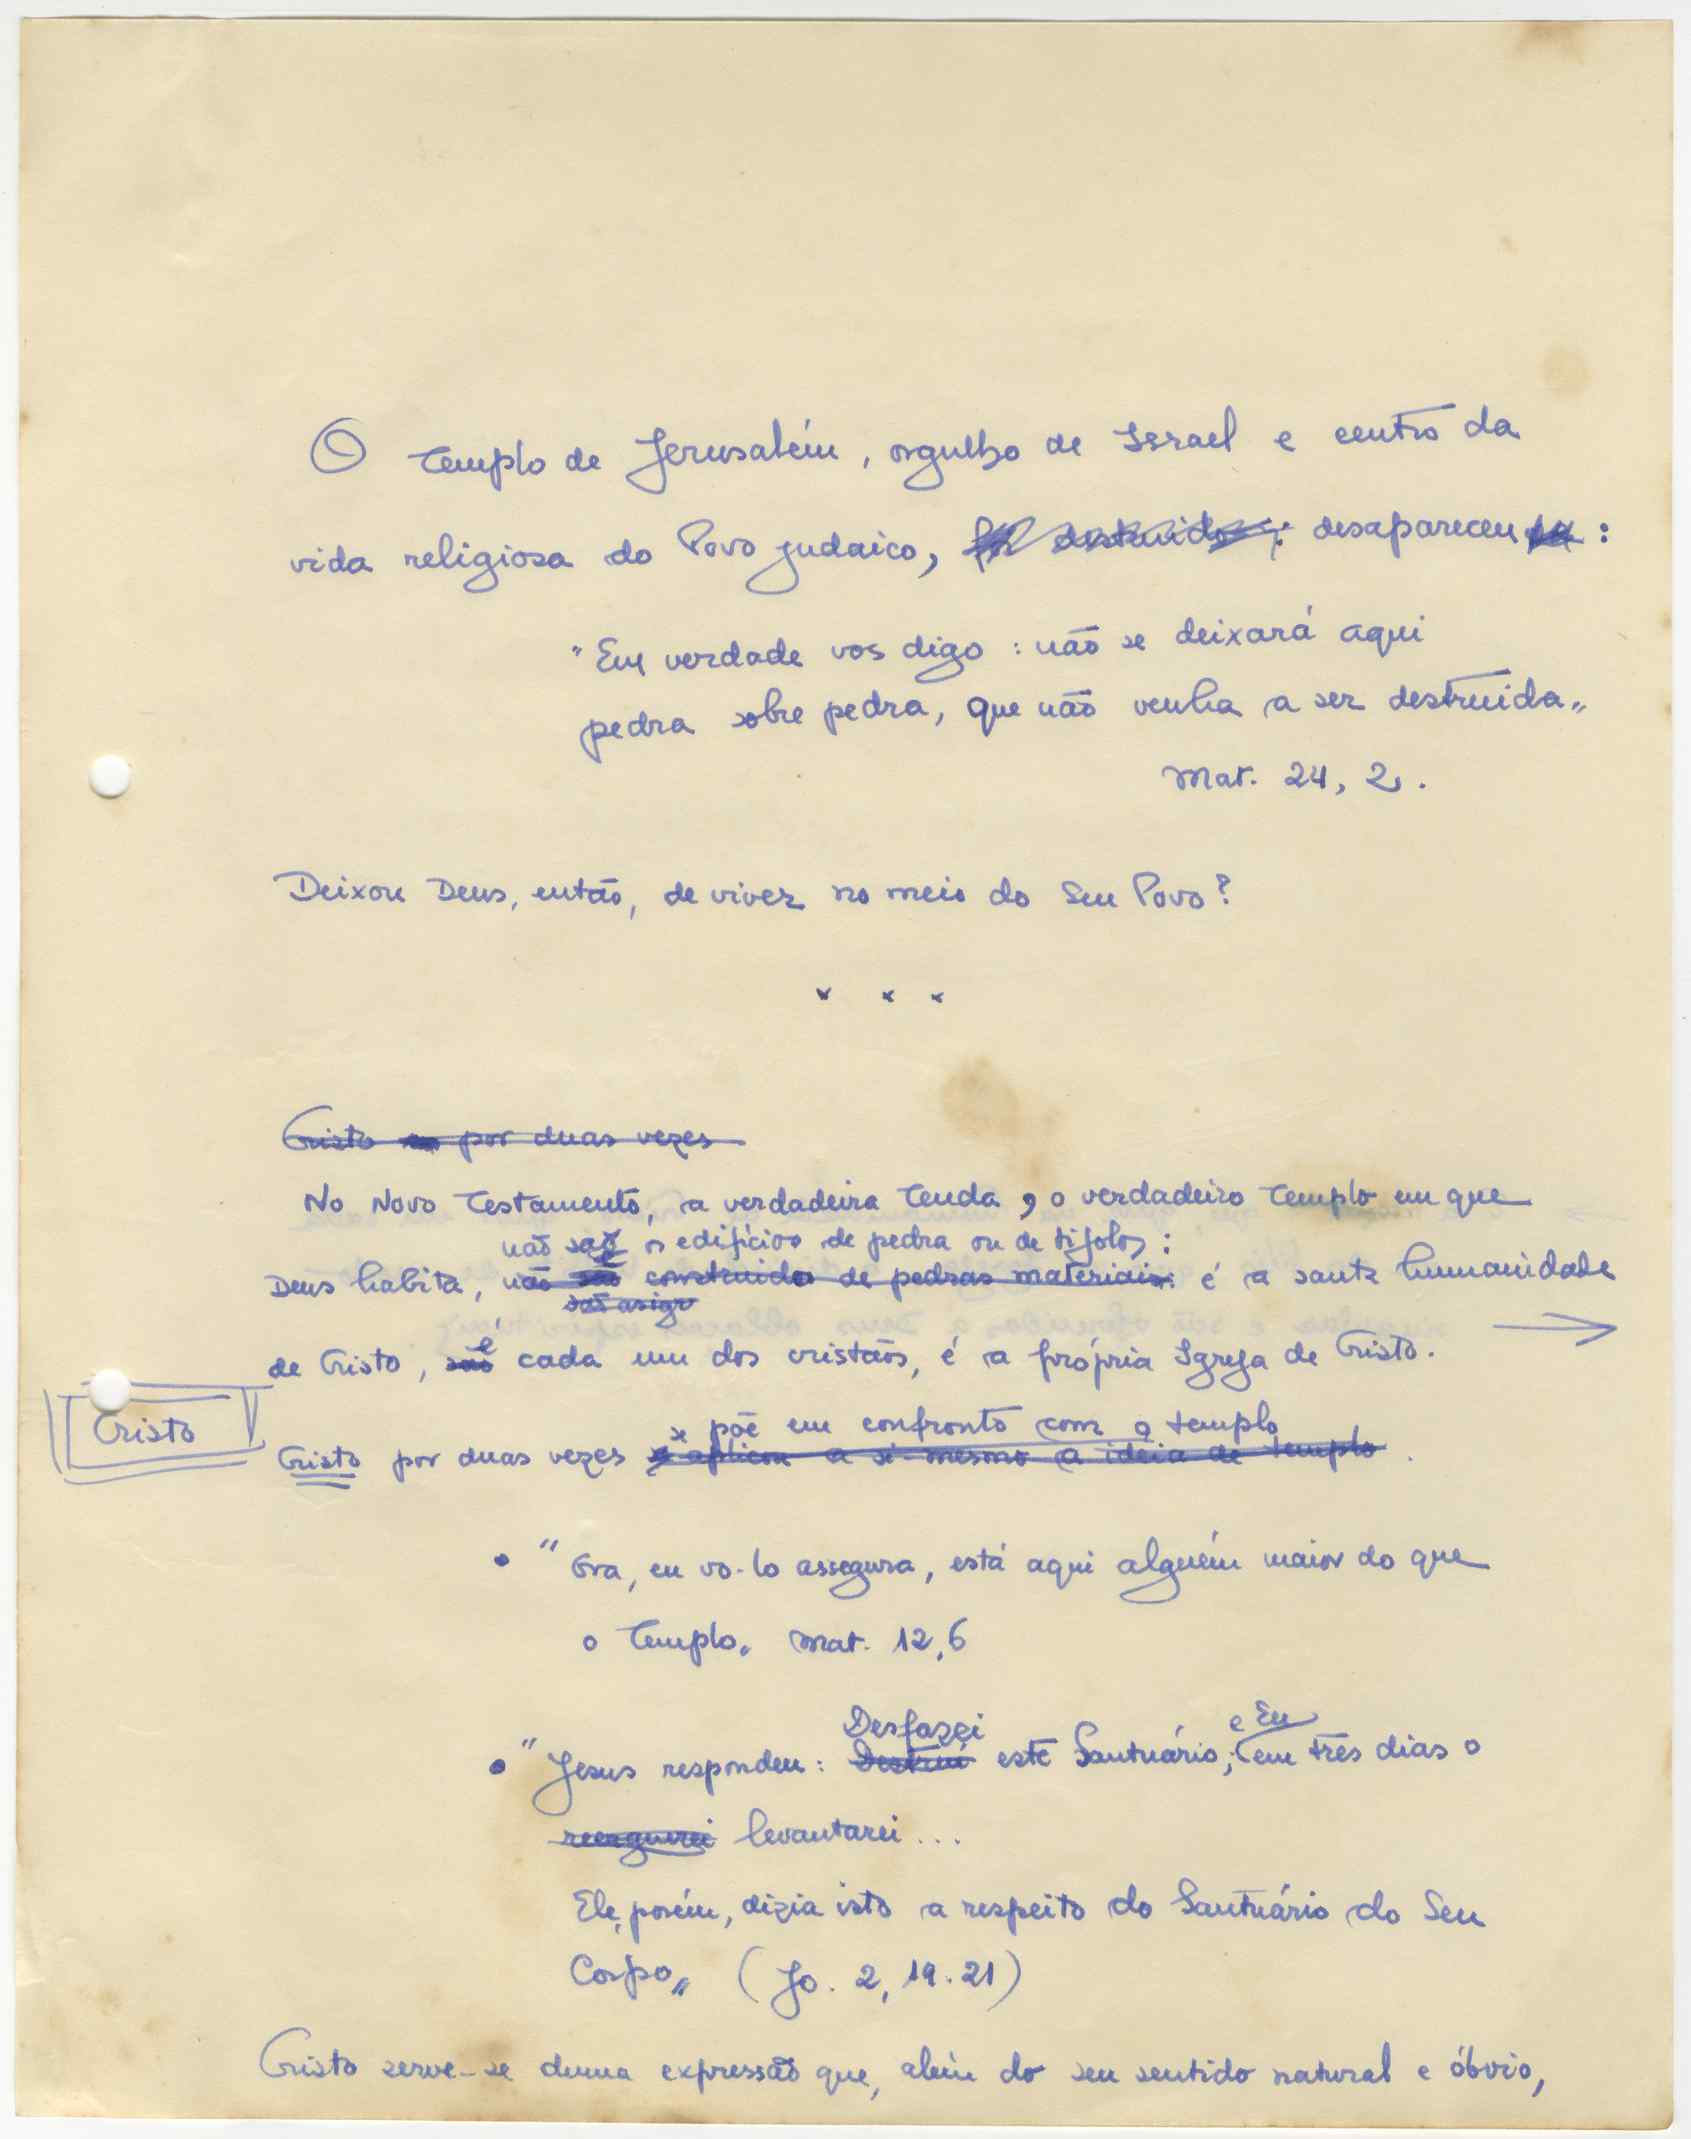 O Templo de Jerusalém, orgulho de Israel e centro da
vida religiosa do Povo judaico, foi destruido: desapareceu :
"Em verdade vos digo : não se deixará aqui
pedra sobre pedra, que não venha a ser destruida„
Mat. 24, 2.
Deixou Deus, então, de viver no meio do Seu Povo?
x x x
Cristo por duas vezes
No Novo Testamento, a verdadeira Tenda, o verdadeiro Templo em que
não são os edifícios de pedra ou de tijolos:
Deus habita, não são construidos de pedras materiais: é a santa humanidade
são
é
de Cristo, são cada um dos cristãos, é a própria Igreja de Cristo.
Cristo
se põe em confronto com o templo
Cristo por duas vezes se aplicou a si mesmo a ideia de templo .
• "Ora, eu vo-lo assegura, está aqui alguém maior do que
o Templo„ Mat. 12,6
Desfazei e Eu
• "Jesus respondeu: Destrui este Santuário; em três dias o
reerguerei levantarei...
Ele, porém, dizia isto a respeito do Santuário do Seu
Corpo„ (Jo. 2, 19.21)
Cristo serve-se duma expressão que, além do seu sentido natural e óbvio,